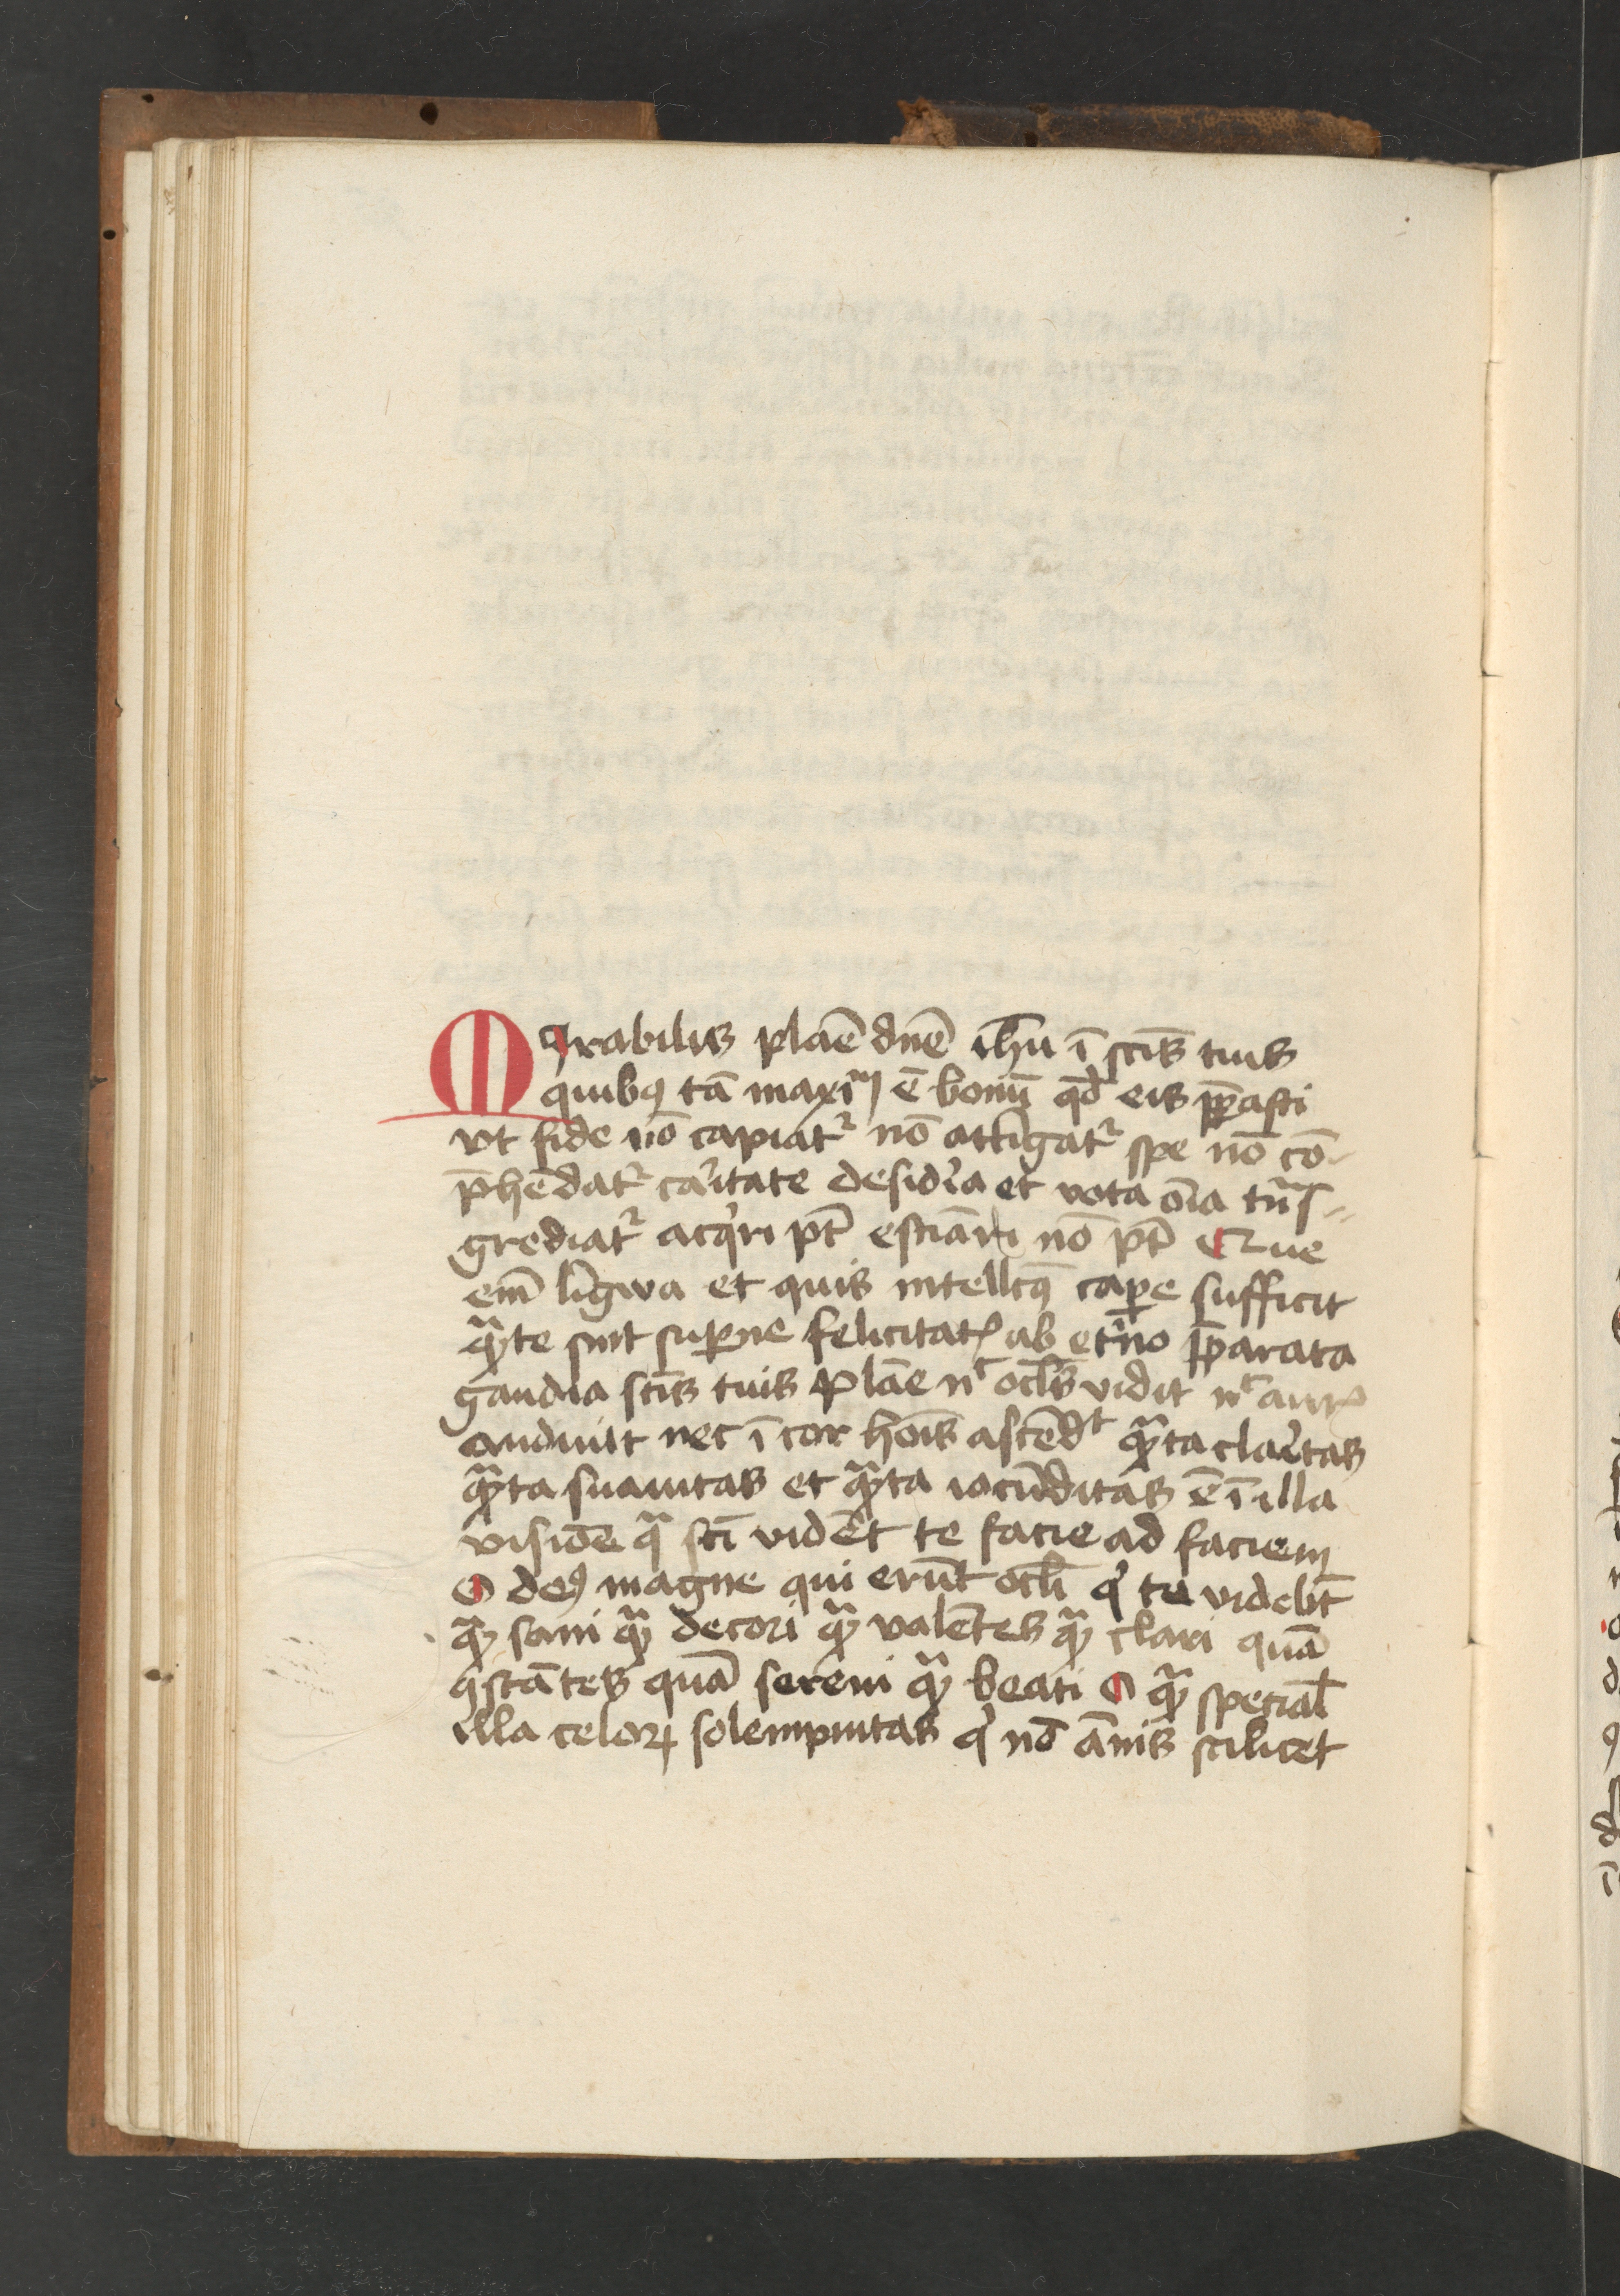 MIrabilis plāe dn̄e ih̄u ī sc̄is tuis
quibꝰ tā maxīm ē bonū qd̄ eis p̄pasti
vt fide nō capiatᷣ nō attīgatᷣ spe nō cō-
p̄hēdatᷣ caͥtate desid̾ia et vota oīa tn̄s-
grediatᷣ acqͥri pt̄ estīari nō pt̄ Que
em̄ līgwa et quis intellcꝰ cap̄e sufficit
qᷓte sint suꝑne felicitatꝭ ab et̾no p̄parata
gaudia sc̄is tuis Plāe nͨ ocl̄s vidit nͨ aurꝭ
audiuit nec ī cor hoīs ascēdͭ qᷓta claͥtas
qᷓta suauitas et qᷓta iocūditas ē ī illa
visiōe qᷓ sc̄i vidēt te facie ad faciem
O deꝰ magne qui erūt ocl̄i qͥ te videbt̄
qᷓꝫ sani qᷓꝫ decori qᷓꝫ valētes qᷓꝫ clari quā
ꝯstātes quā sereni qᷓꝫ beati O qᷓꝫ speciał
illa celoꝝ solempnitas qͥ nō ānis scilicet